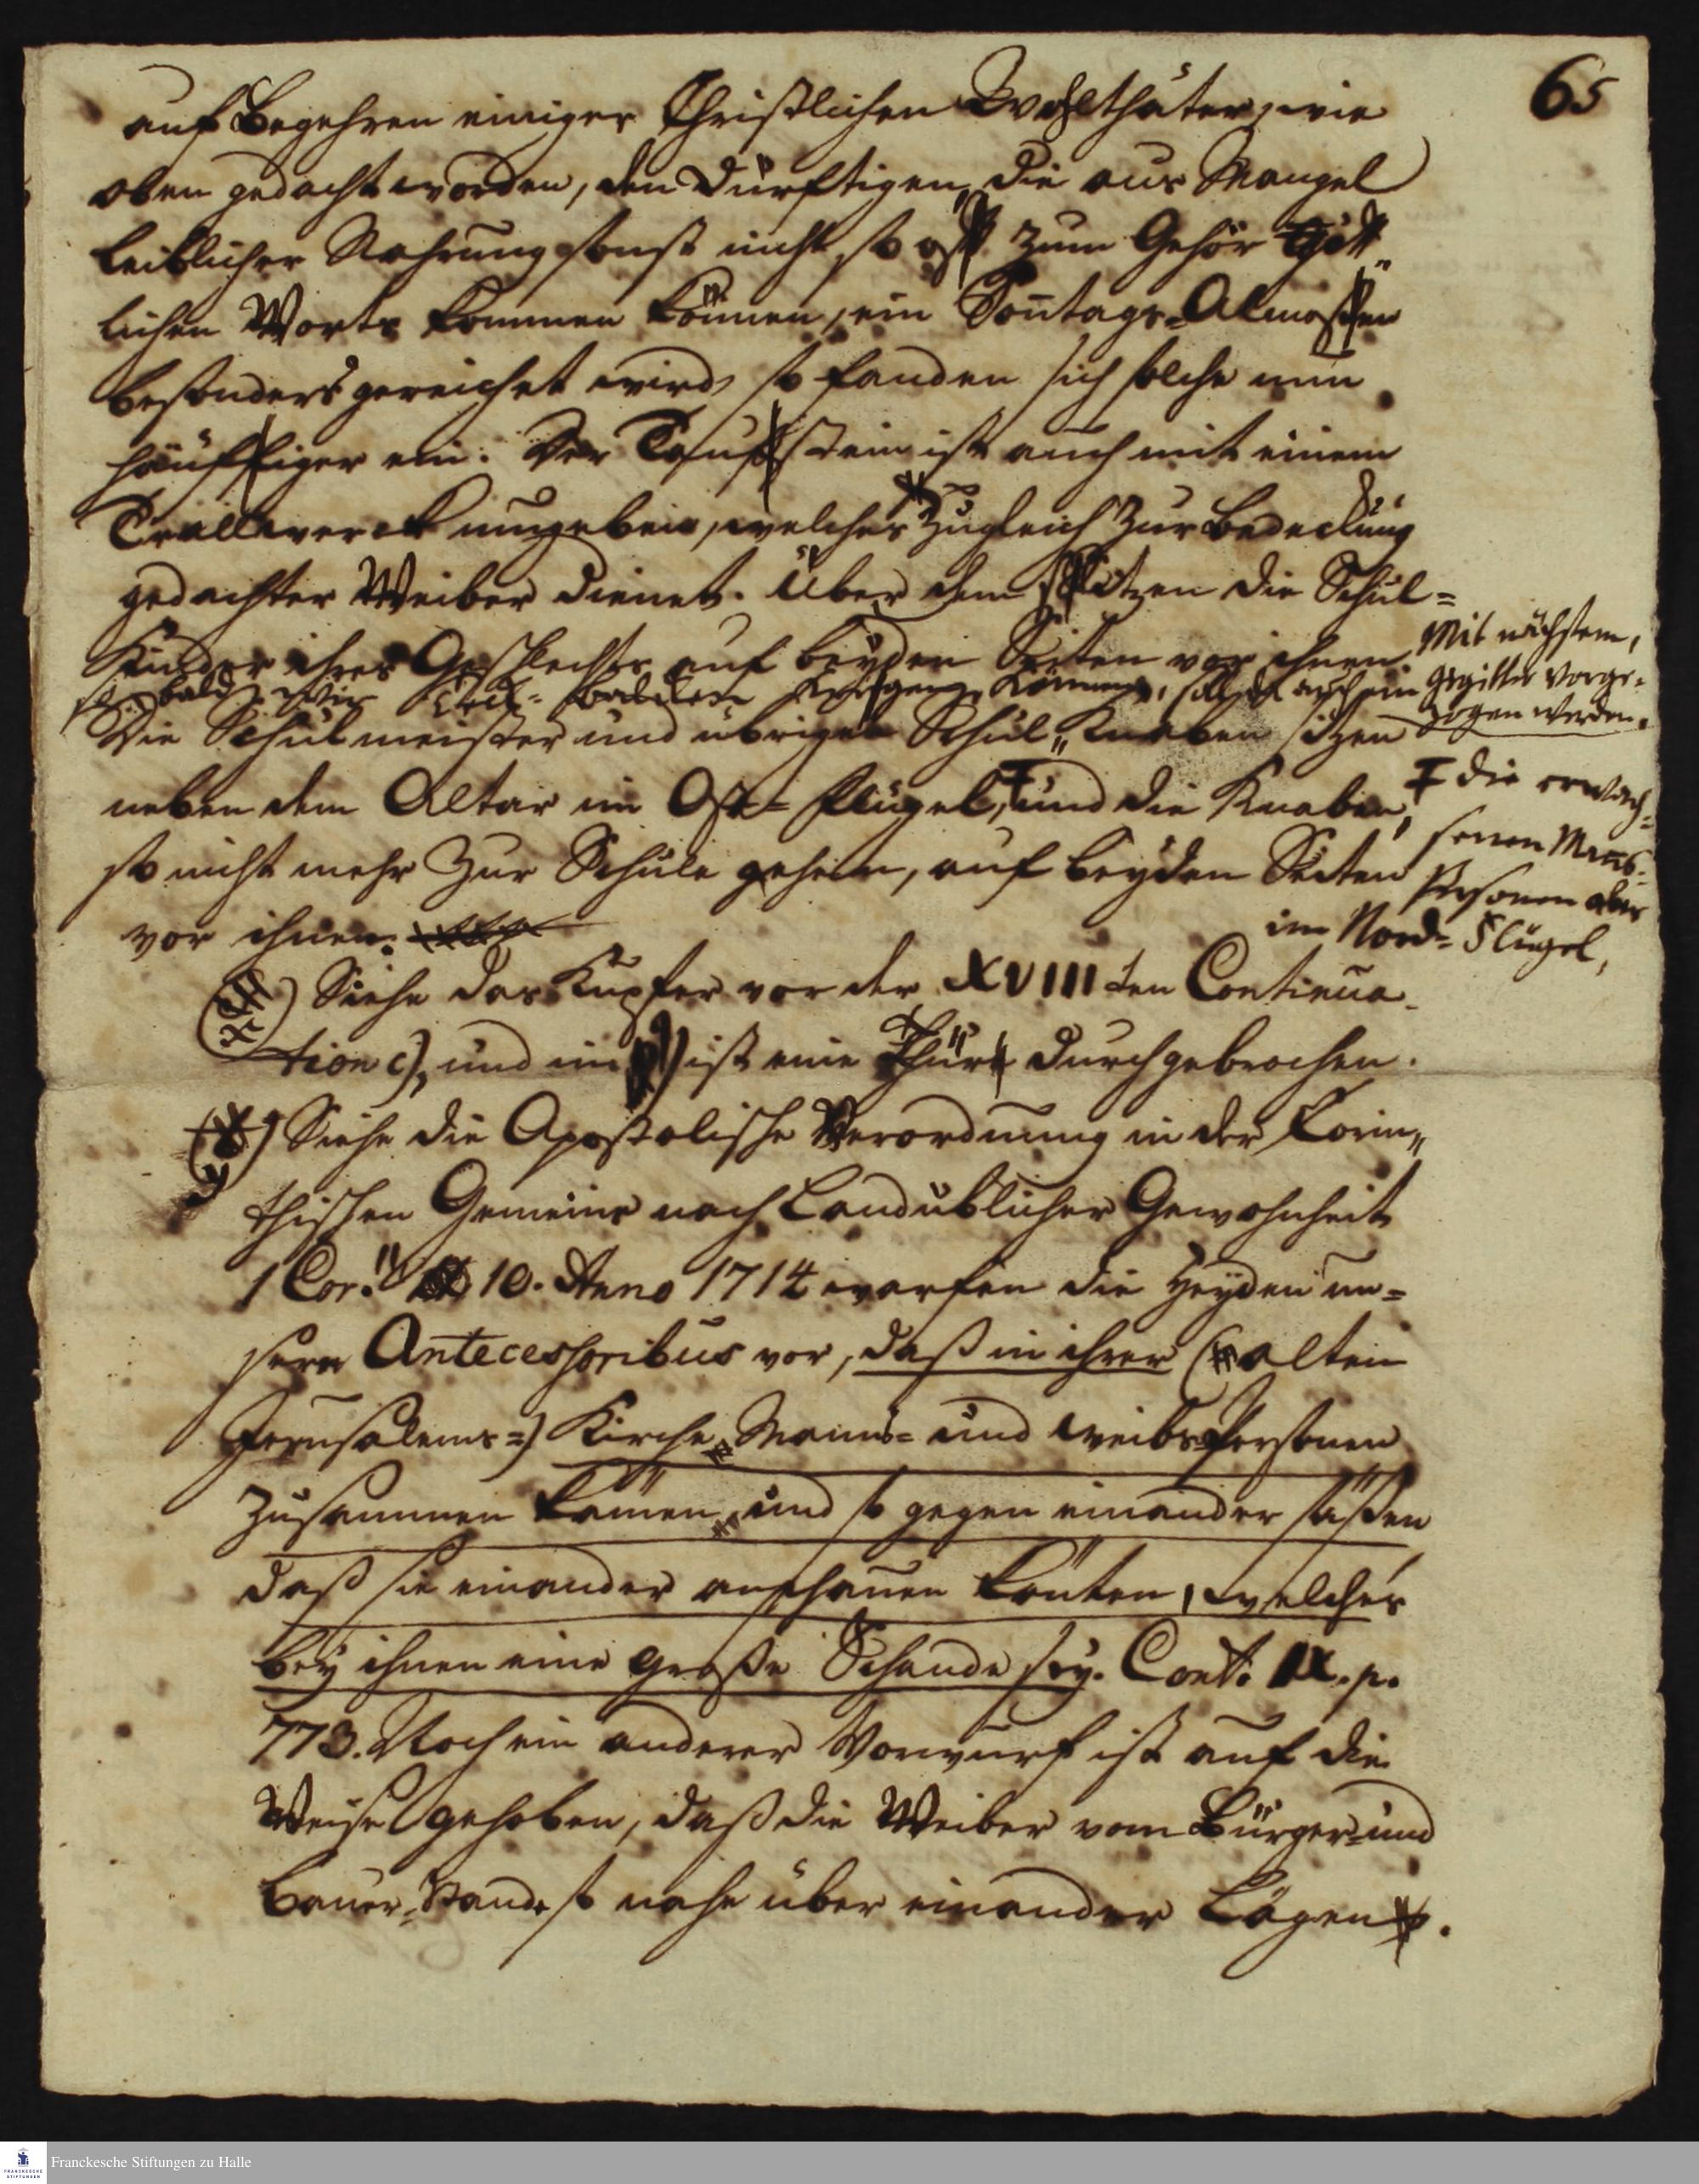 65
auf Begehren einiger Christlichen Wohlthäter, wie
oben gedacht worden, den Dürftigen, die aus Mangel
leiblicher Nahrung sonst nicht so oft zum Gehör Gött„
lichen Worts kommen können, ein Soñtags-Almosen
besonders gereichet wird, so fanden sich solche nun
häuffiger ein. Der Taufstein ist auch mit einem
Trallwerck umgeben, welches zugleich zur Bedeckung
gedachter Weiber dienet. Über dem sitzen die Schul=
Kinder ihres Geschlechts auf beyden Seiten vor ihnen. Mit nächstem,
so bald wir kriegen können, soll da auch ein Gegitter vorge-
zogen werden.
Die Schulmeister und übrigen Schul„Knaben sitzen
neben dem Altar im Ost=Flügel, und die Knaben,
Ŧ die erwach=
senen Mañs=
Personen aber
im Nord=Flügel,
so nicht mehr zur Schule gehen, auf beyden Seiten
vor ihnen.
Siehe das Kupfer vor der XVIIIten Continua-
tion c), und im ist eine Thür durchgebrochen.
Siehe die Apostolische Verordnung in der Corin„
thischen Gemeine nach Landüblicher Gewohnheit
1 Cor. 11 10. Anno 1714 warfen die Heyden un=
sern Antecessoribus vor, daß in ihrer (alten
Jerusalems=) Kirche Manns= und Weibs Personen
zusammen kämen, und so gegen einander säßen
daß sie einander anschauen könten, welches
bey ihnen eine große Schande sey. Cont. IX. p.
773. Noch ein anderer Vorwurf ist auf die
Weise gehoben, daß die Weiber vom Bürger- und
Bauer-Stande so nahe über einander lägen.
Franckesche Stiftungen zu Halle